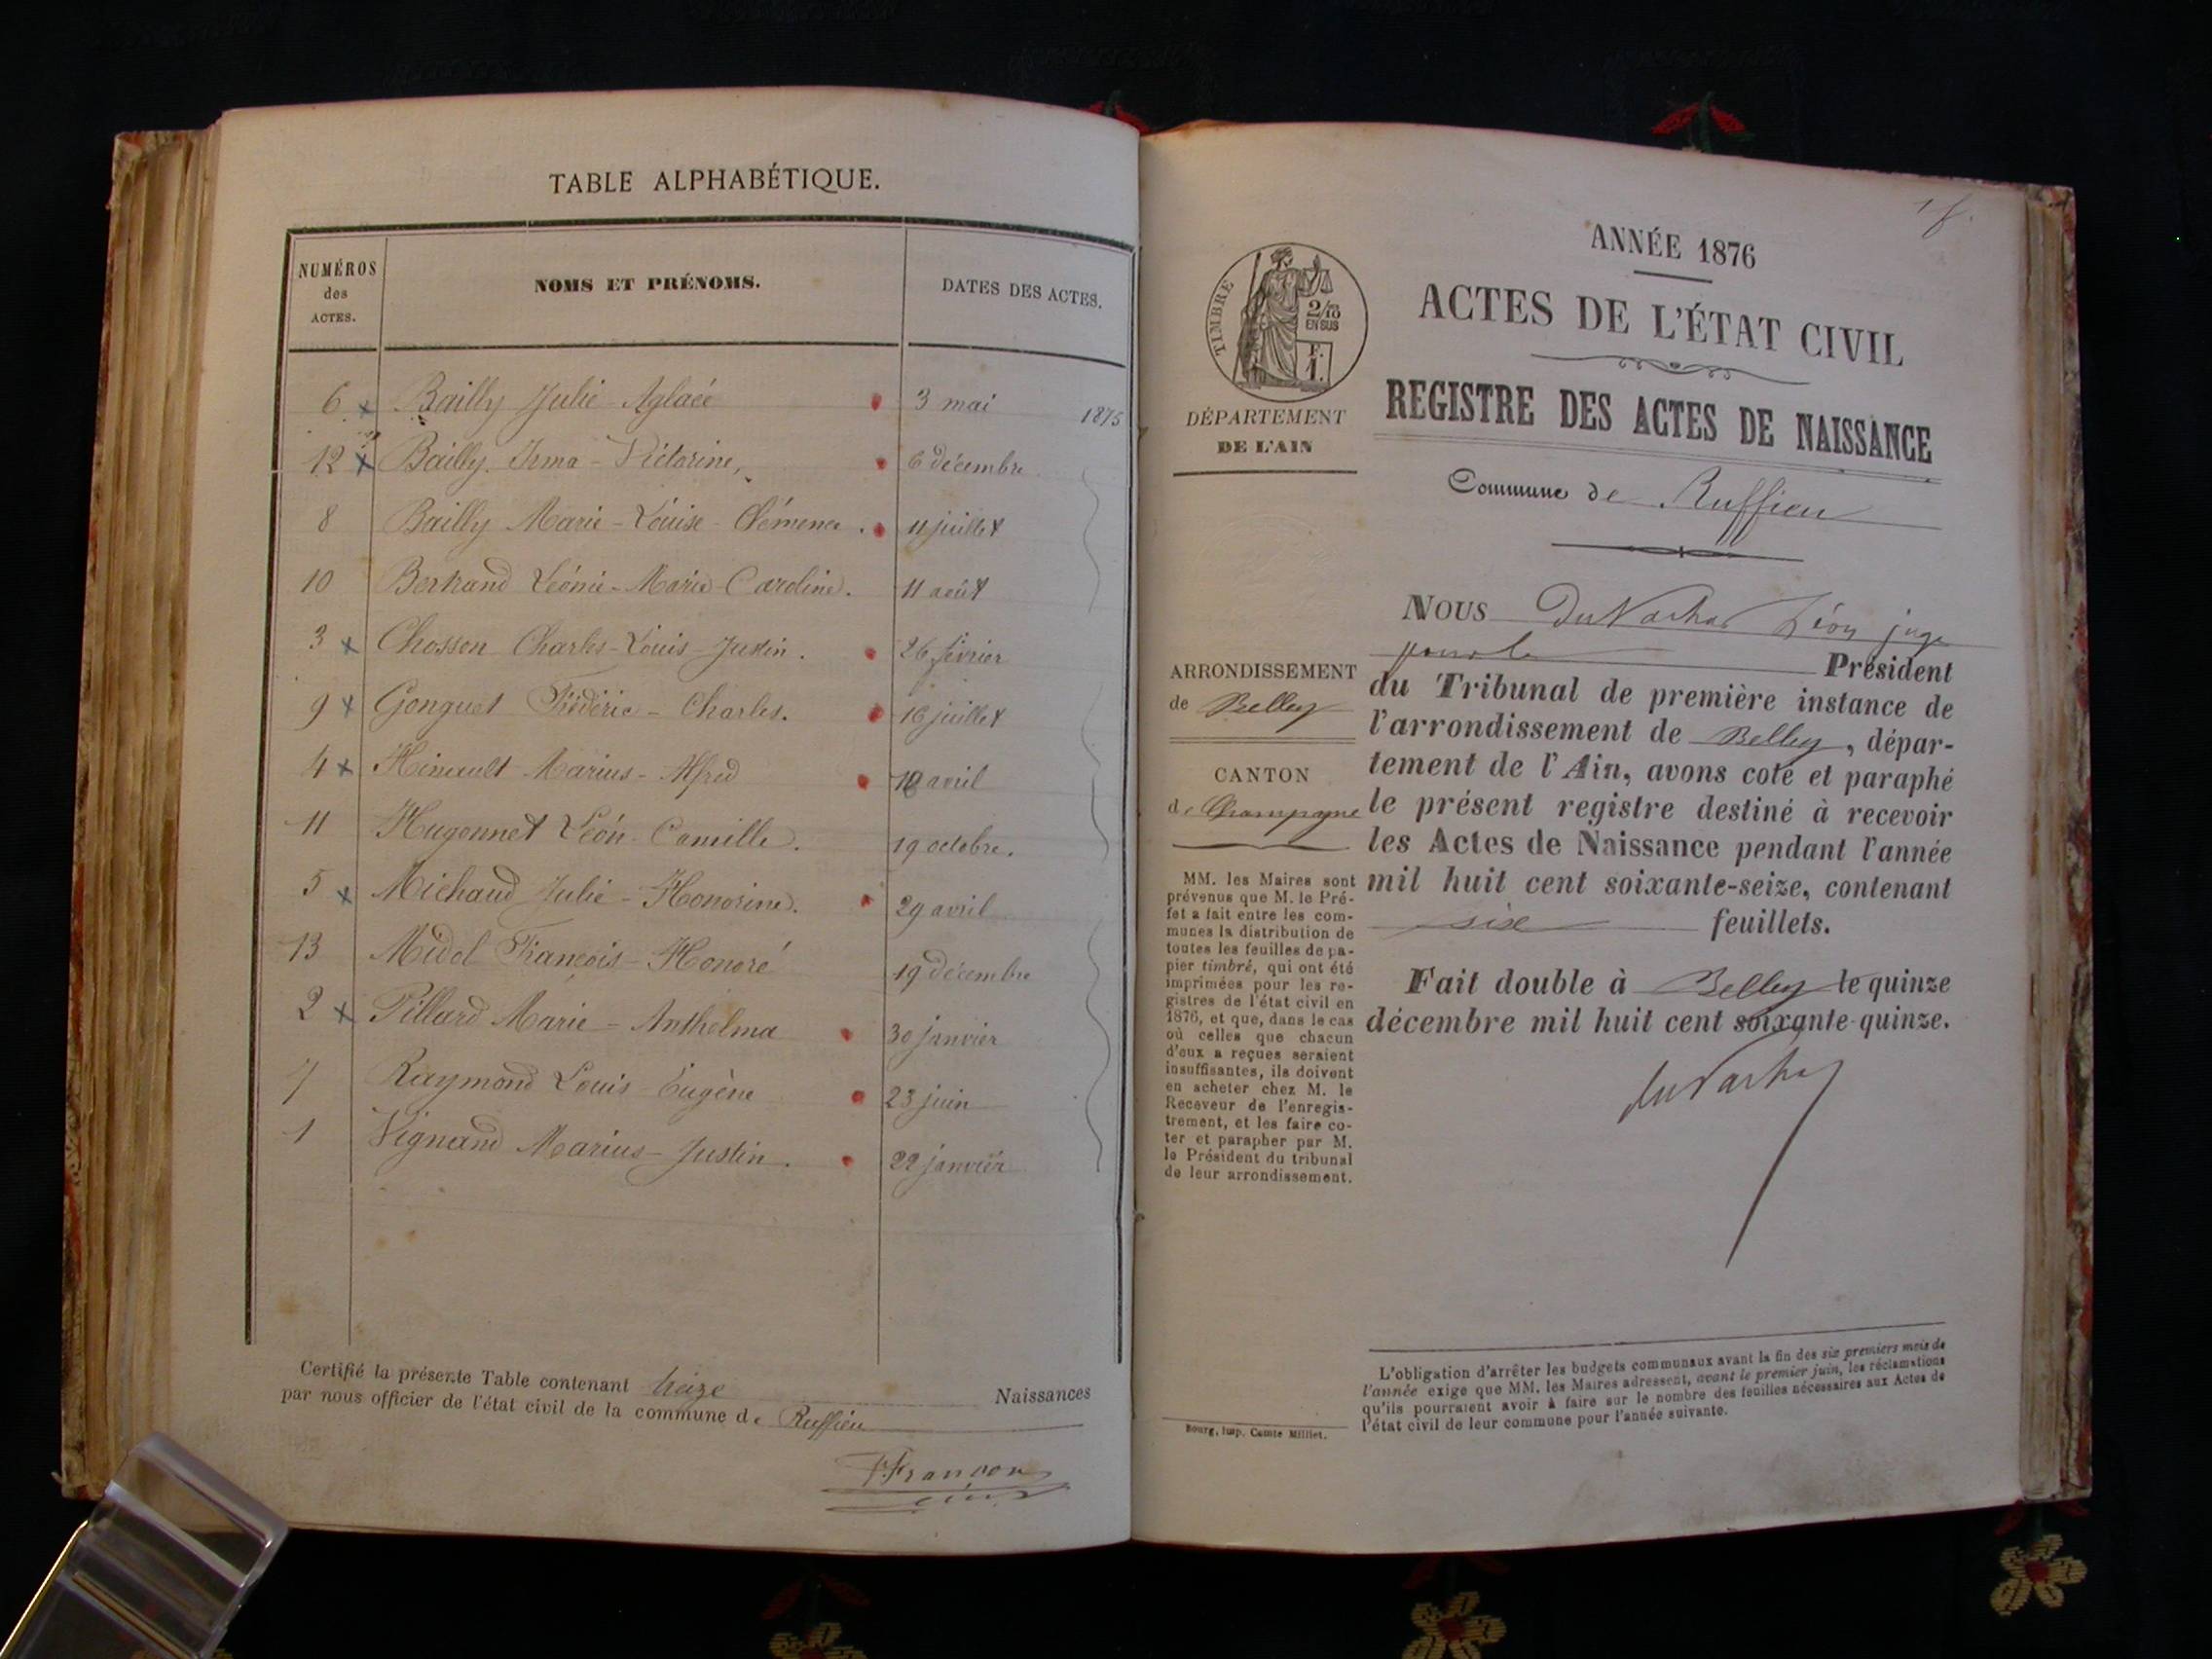 TABLE ALPHABÉTIQUE.
NUMÉROS
des
ACTES.
NOMS ET PRÉNOMS.
DATES DES ACTES.
6 Bailly Julie Aglaée 3 mai 1875
12 Bailly Irma-Victorine, 6 décembre
8 Bailly Marie-Louise-Clémence. 11 juillet
10 Bertrand Léonie-Marie-Caroline. 11 août
3 Chosson Charles-Louis-Justin. 26 février
9 Gonguet Frédéric-Charles. 16 juillet
4 Hinault Marius-Alfred avril
11 Hugonnet Léon-Camille. 19 octobre.
5 Michaud Julie-Honorine. 29 avril
13 Midol François-Honoré 19 décembre
2 Pillard Marie-Anthelma 30 janvier
7 Raymond Louis Eugène 23 juin
1 Vignand Marius-Justin. 22 janvier
Certifié la présente Table contenant treize Naissances
par nous officier de l'état civil de la commune de Ruffieu
ANNÉE 1876
ACTES DE L'ÉTAT CIVIL
REGISTRE DES ACTES DE NAISSANCE
Commune de Ruffieu
TIMBRE
2/10
EN SUS
F.
1.
DÉPARTEMENT
DE L'AIN
ARRONDISSEMENT
de Belley
CANTON
de Champagne
MM. les Maires sont
prévenus que M. le Pré-
fet a fait entre les com-
munes la distribution de
toutes les feuilles de pa-
pier timbré, qui ont été
imprimées pour les re-
gistres de l'état civil en
1876, et que, dans le cas
où celles que chacun
d'eux a reçues seraient
insuffisantes, ils doivent
en acheter chez M. le
Receveur de l'enregis-
trement, et les faire co-
ter et parapher par M.
le Président du tribunal
de leur arrondissement.
NOUS Léon juge
pour le Président
du Tribunal de première instance de
l'arrondissement de Belley, dépar-
tement de l'Ain, avons coté et paraphé
le présent registre destiné à recevoir
les Actes de Naissance pendant l'année
mil huit cent soixante-seize, contenant
six feuillets.
Fait double à Belley le quinze
décembre mil huit cent soixante-quinze.
L'obligation d'arrêter les budgets communaux avant la fin des six premiers mois de
l'année exige que MM. les Maires adressent, avant le premier juin, les réclamations
qu'ils pourraient avoir à faire sur le nombre des feuilles nécessaires aux Actes de
l'état civil de leur commune pour l'année suivante.
Bourg, imp. Comte Milliet.